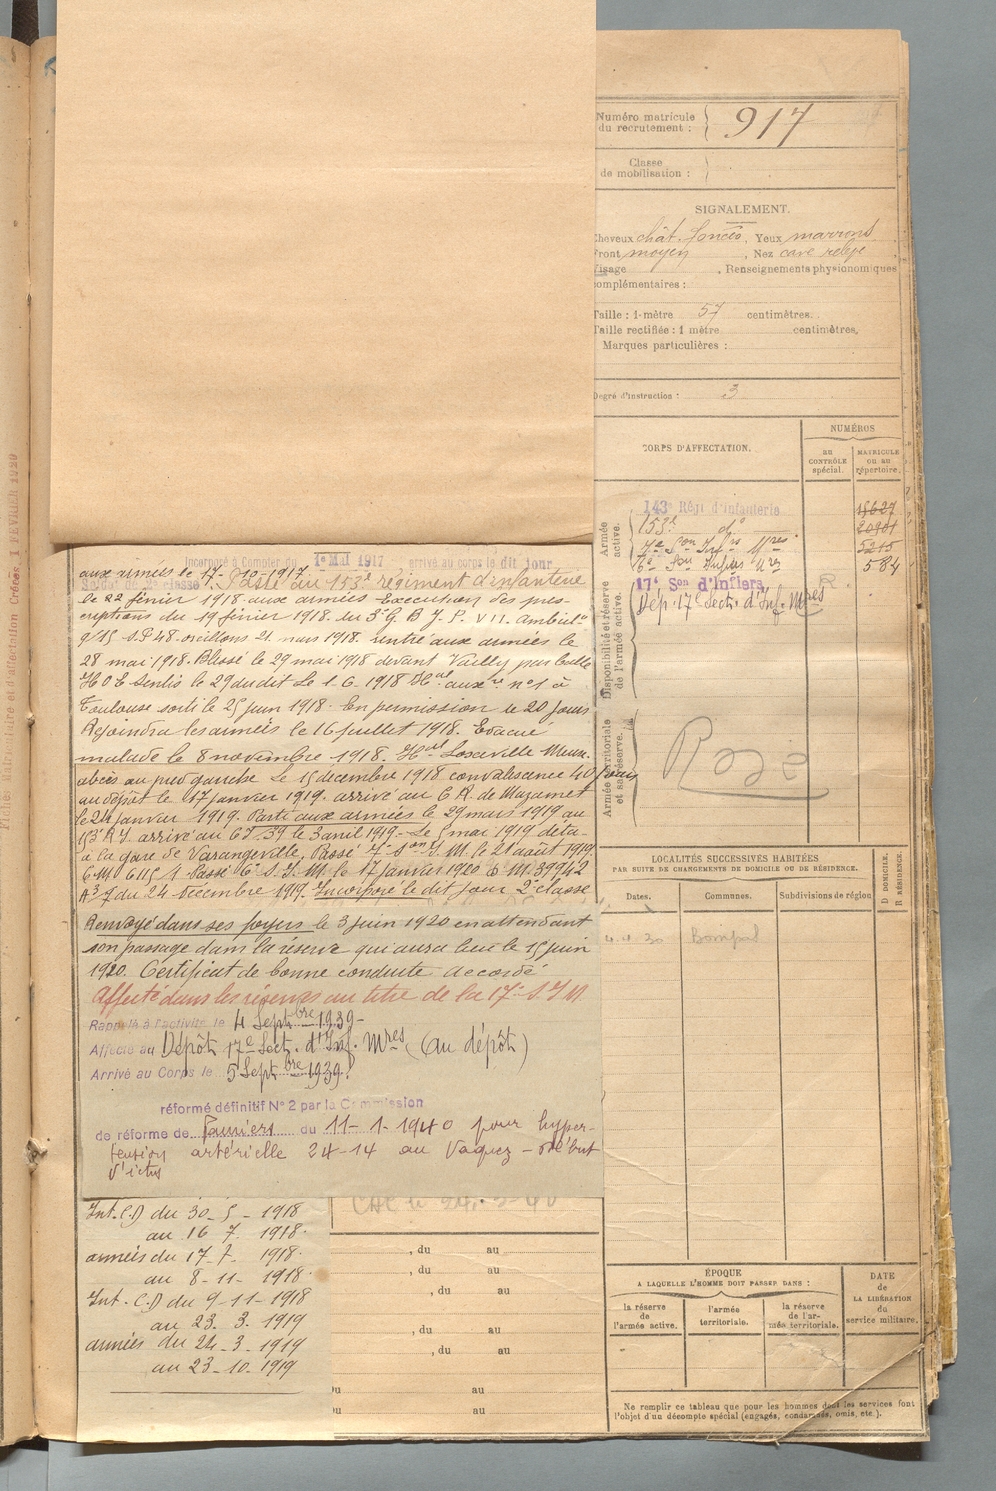 Numéro matricule
du recrutement : 917
Classe
de mobilisation :
SIGNALEMENT.
Cheveux chât. foncés, Yeux marrons
Front moyen, Nez cave relevé
Visage , Renseignements physionomiques
complémentaires :
Taille : 1 mètre 57 centimètres.
Taille rectifiée : 1 mètre centimètres.
Marques particulières :
Degré d'instruction : 3
CORPS D'AFFECTATION.
NUMÉROS
au
CONTRÔLE
spécial.
MATRICULE
ou au
répertoire.
Armée
active.
143e Régt d'infanterie
153e do 20901
7e Son Infrs Mres 5215
6e Son Infirs Mres 584
Disponibilité et réserve
de l'armée active.
17e Son d'Infiers R
Dép. 17e Sect. d'Inf. Mres
Armée territoriale
et sa réserve.
LOCALITÉS SUCCESSIVES HABITÉES
PAR SUITE DE CHANGEMENTS DE DOMICILE OU DE RÉSIDENCE.
Dates.
Communes.
Subdivisions de région
D DOMICILE.
R RÉSIDENCE.
Bompas
ÉPOQUE
A LAQUELLE L'HOMME DOIT PASSER DANS :
la réserve
de
l'armée active.
l'armée
territoriale.
la réserve
de l'ar-
mée territoriale.
DATE
de
LA LIBÉRATION
du
service militaire.
Ne remplir ce tableau que pour les hommes dont les services font
l'objet d'un décompte spécial (engagés, condamnés, omis, etc.).
Incorporé à Compter du 1er Mai 1917 arrivé au corps le dit jour
Soldat de 2e classe
aux armées le 17-10-1917. Passé au 153e régiment d'infanterie
le 22 février 1918 aux armées Execution des pres-
criptions du 19 février 1918. du 3e G. B
S.P 48. oreillons 21 mars 1918. rentré aux armées le
28 mai 1918. Blessé le 29 mai 1918 devant Vailly par balle
H O E Senlis le 29 du dit Le 1. 6. 1918 Hal auxre no 1 à
Toulouse sorti le 25 juin 1918. En permission de 20 jours
Rejoindra les armées le 16 juillet 1918. Evacué
malade le 8 novembre 1918. Hal
abcès au pied gauche Le 15 décembre 1918 convalescence 40 jours
au dépôt le 17 janvier 1919. arrivé au C.R. de Mazamet
le 24 janvier 1919. Parti aux armées le 29 mars 1919 au
153 R I. arrivé au C I. 39 le 3 avril 1919 - Le 5 mai 1919 déta-
à la gare de Varangeville. Passé 7e Son I. M. le 21 août 1919
C M 6115/1 Passé 6e S. I. M. le 17 janvier 1920 C M. 39942
du 24 décembre 1919. Incorporé le dit jour 2e classe
Renvoyé dans ses foyers le 3 juin 1920 en attendant
son passage dans la réserve qui aura lieu le 15 juin
1920. Certificat de bonne conduite Accordé
Affecté dans les réserves au titre de la 17e S. I M
Rappelé à l'activité le 4 Septbre 1939 -
Affecté au Dépôt 17e Sect. d'Inf. Mres (au dépôt)
Arrivé au Corps le 5 Septbre 1939.
réformé définitif No 2 par la Commission
de réforme de Pamiers du 11-1-1940 pour hyper-
tension artérielle 24-14 au Vaquez - début
d'ictus
Int. C.D du 30-5-1918
au 16 7. 1918.
armées du 17-7- 1918.
au 8-11-1918.
Int. C.D du 9-11-1918
au 23. 3. 1919
armées du 24-3-1919
au 23-10-1919
, du au
, du au
, du au
, du au
, du au
du au
du au